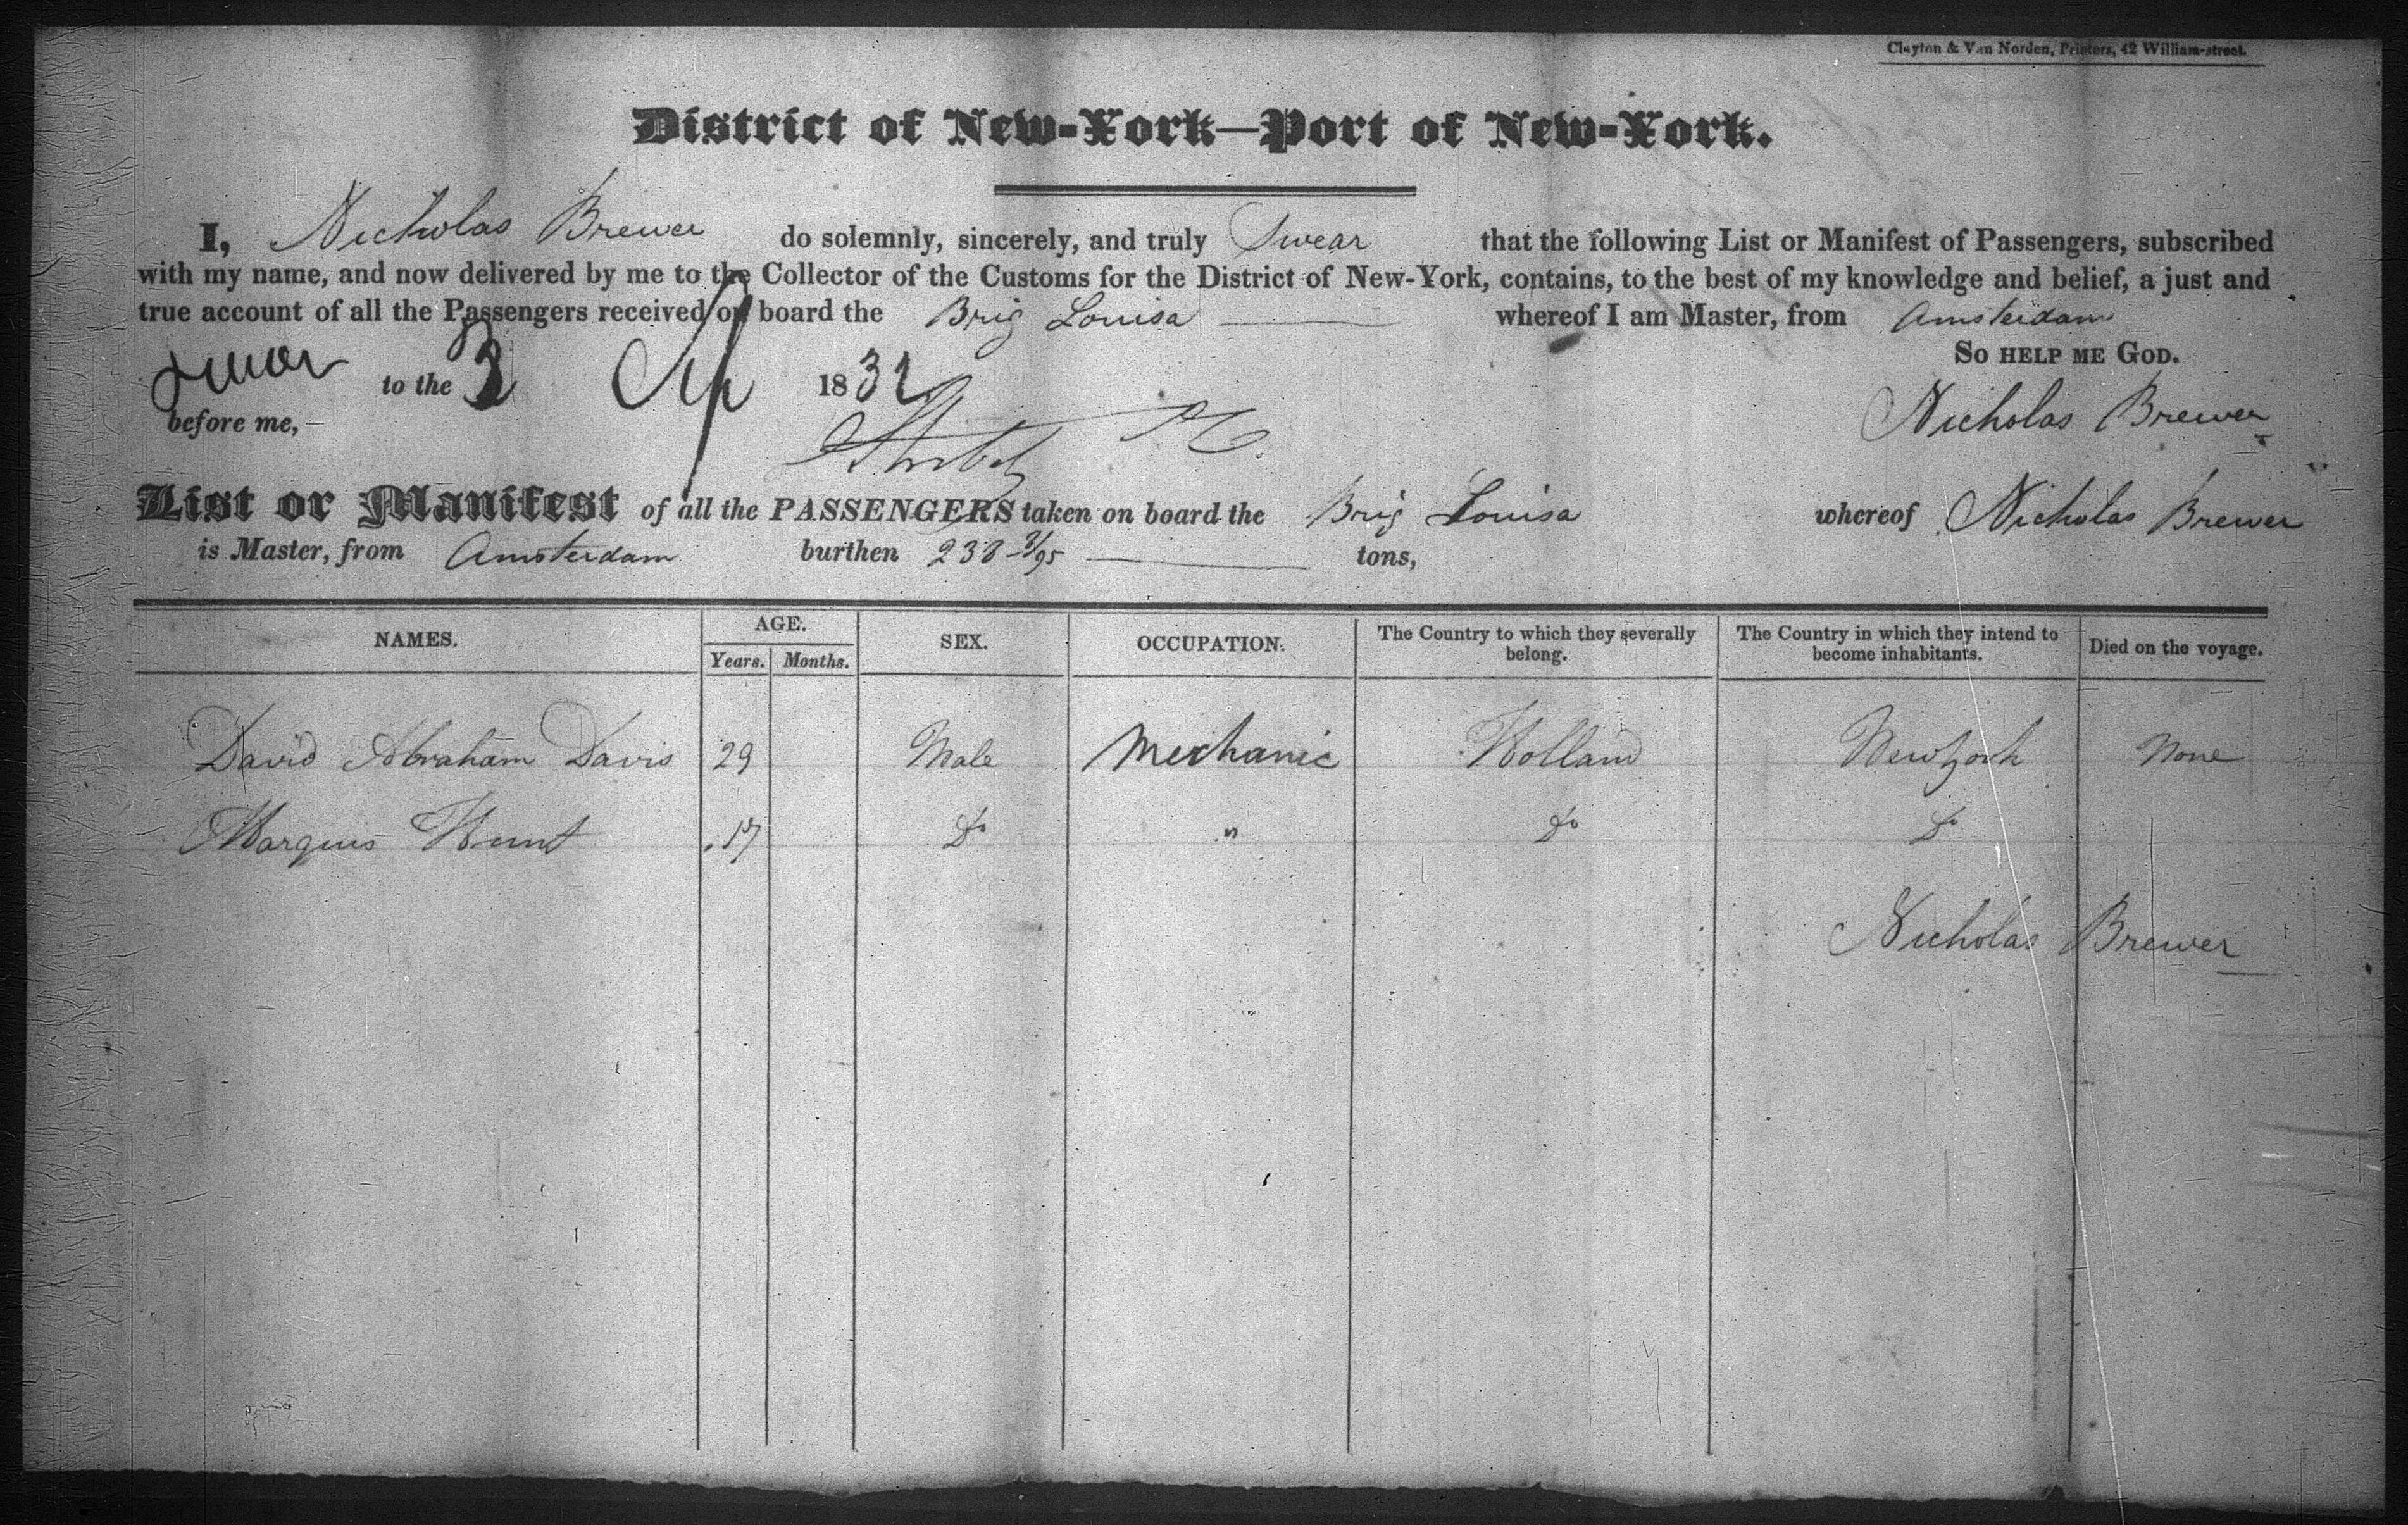 Clayton & Van Norden, Printers, 42 William-street.
District of New-York—Port of New-York.
I, Nicholas Brewer do solemnly, sincerely, and truly Swear that the following List or Manifest of Passengers, subscribed
with my name, and now delivered by me to the Collector of the Customs for the District of New-York, contains, to the best of my knowledge and belief, a just and
true account of all the Passengers received on board the Brig Louisa whereof I am Master, from Amsterdam
So help me God.
to the 3 1832
before me,
Nicholas Brewer
List or Manifest of all the PASSENGERS taken on board the Brig Louisa whereof Nicholas Brewer
is Master, from Amsterdam burthen 238 3/95 tons,
NAMES. AGE. SEX. OCCUPATION. The Country to which they severally belong. The Country in which they intend to become inhabitants. Died on the voyage.
Years. Months.
David Abraham Davis 29 Male Mechanic Holland New York None
Marquis Hunt 17 Do " Do Do
Nicholas Brewer